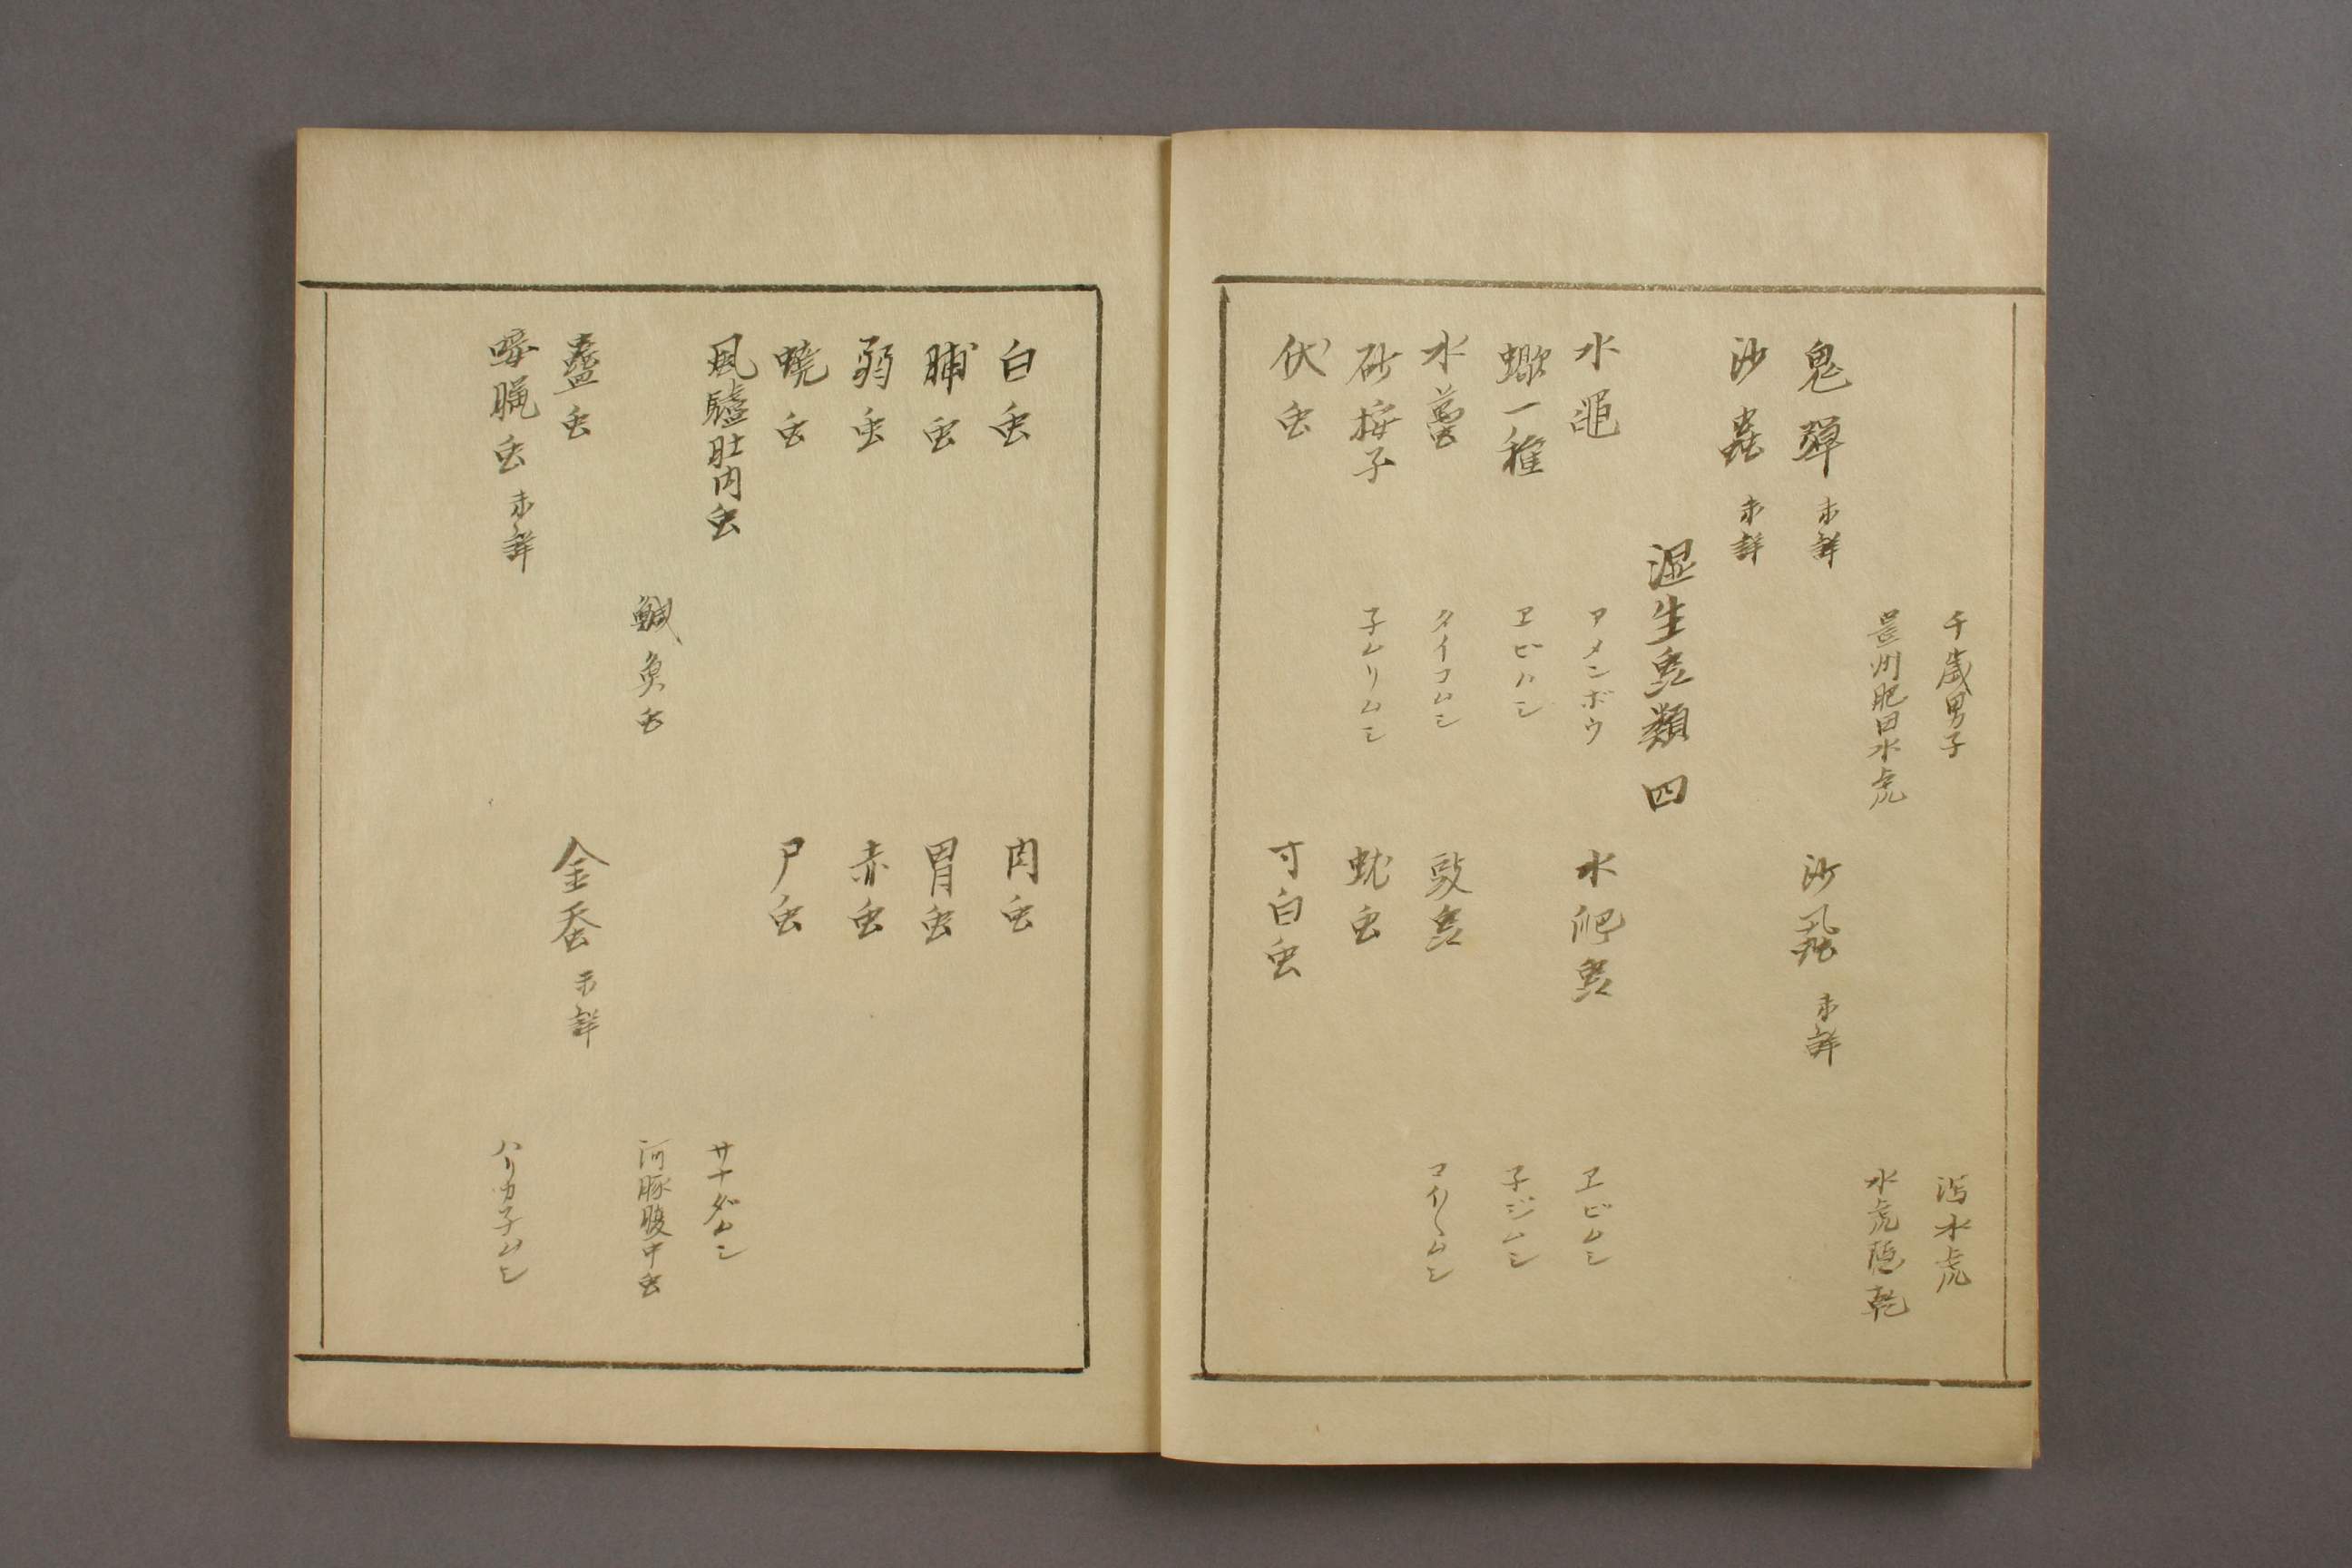 千歳男子　瀉水虎
豊州肥田水虎　水虎陰乾
鬼弾 未詳　沙虱 未詳
沙蟲 未詳
湿生虫類 四
水黽 アメンボウ　水爬虫 ヱビムシ
一種 ヱビハシ　子ジムシ
水蠆 タイコムシ　豉虫 コイ〳〵ムシ
砂挼子 子ムリムシ　蚘虫
伏虫　寸白虫
白虫　肉虫
肺虫　胃虫
弱虫　赤虫
蟯虫　尸虫
風驢肚内虫 サナダムシ
鰔魚虫　河豚腹中虫
蠱虫　金蚕 未詳
唼臘虫 未詳　ハリカ子ムシ